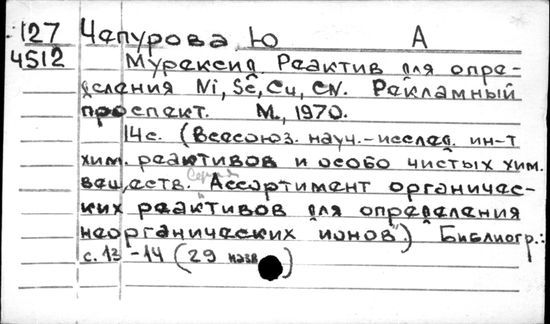 127 Чапурова Ю А
4512 Мурексид Реактив для опре-
деления Ni, Sc, Cu, CN. Рекламный
проспект. М., 1970.
14с. (Всесоюз. науч.-исслед. ин-т
хим. реактивов и особо чистых хим.
веществ. Серия
"Ассортимент органичес-
ких реактивов для определения
неорганических ионов") Библиогр.:
с. 13-14 (29 назв)